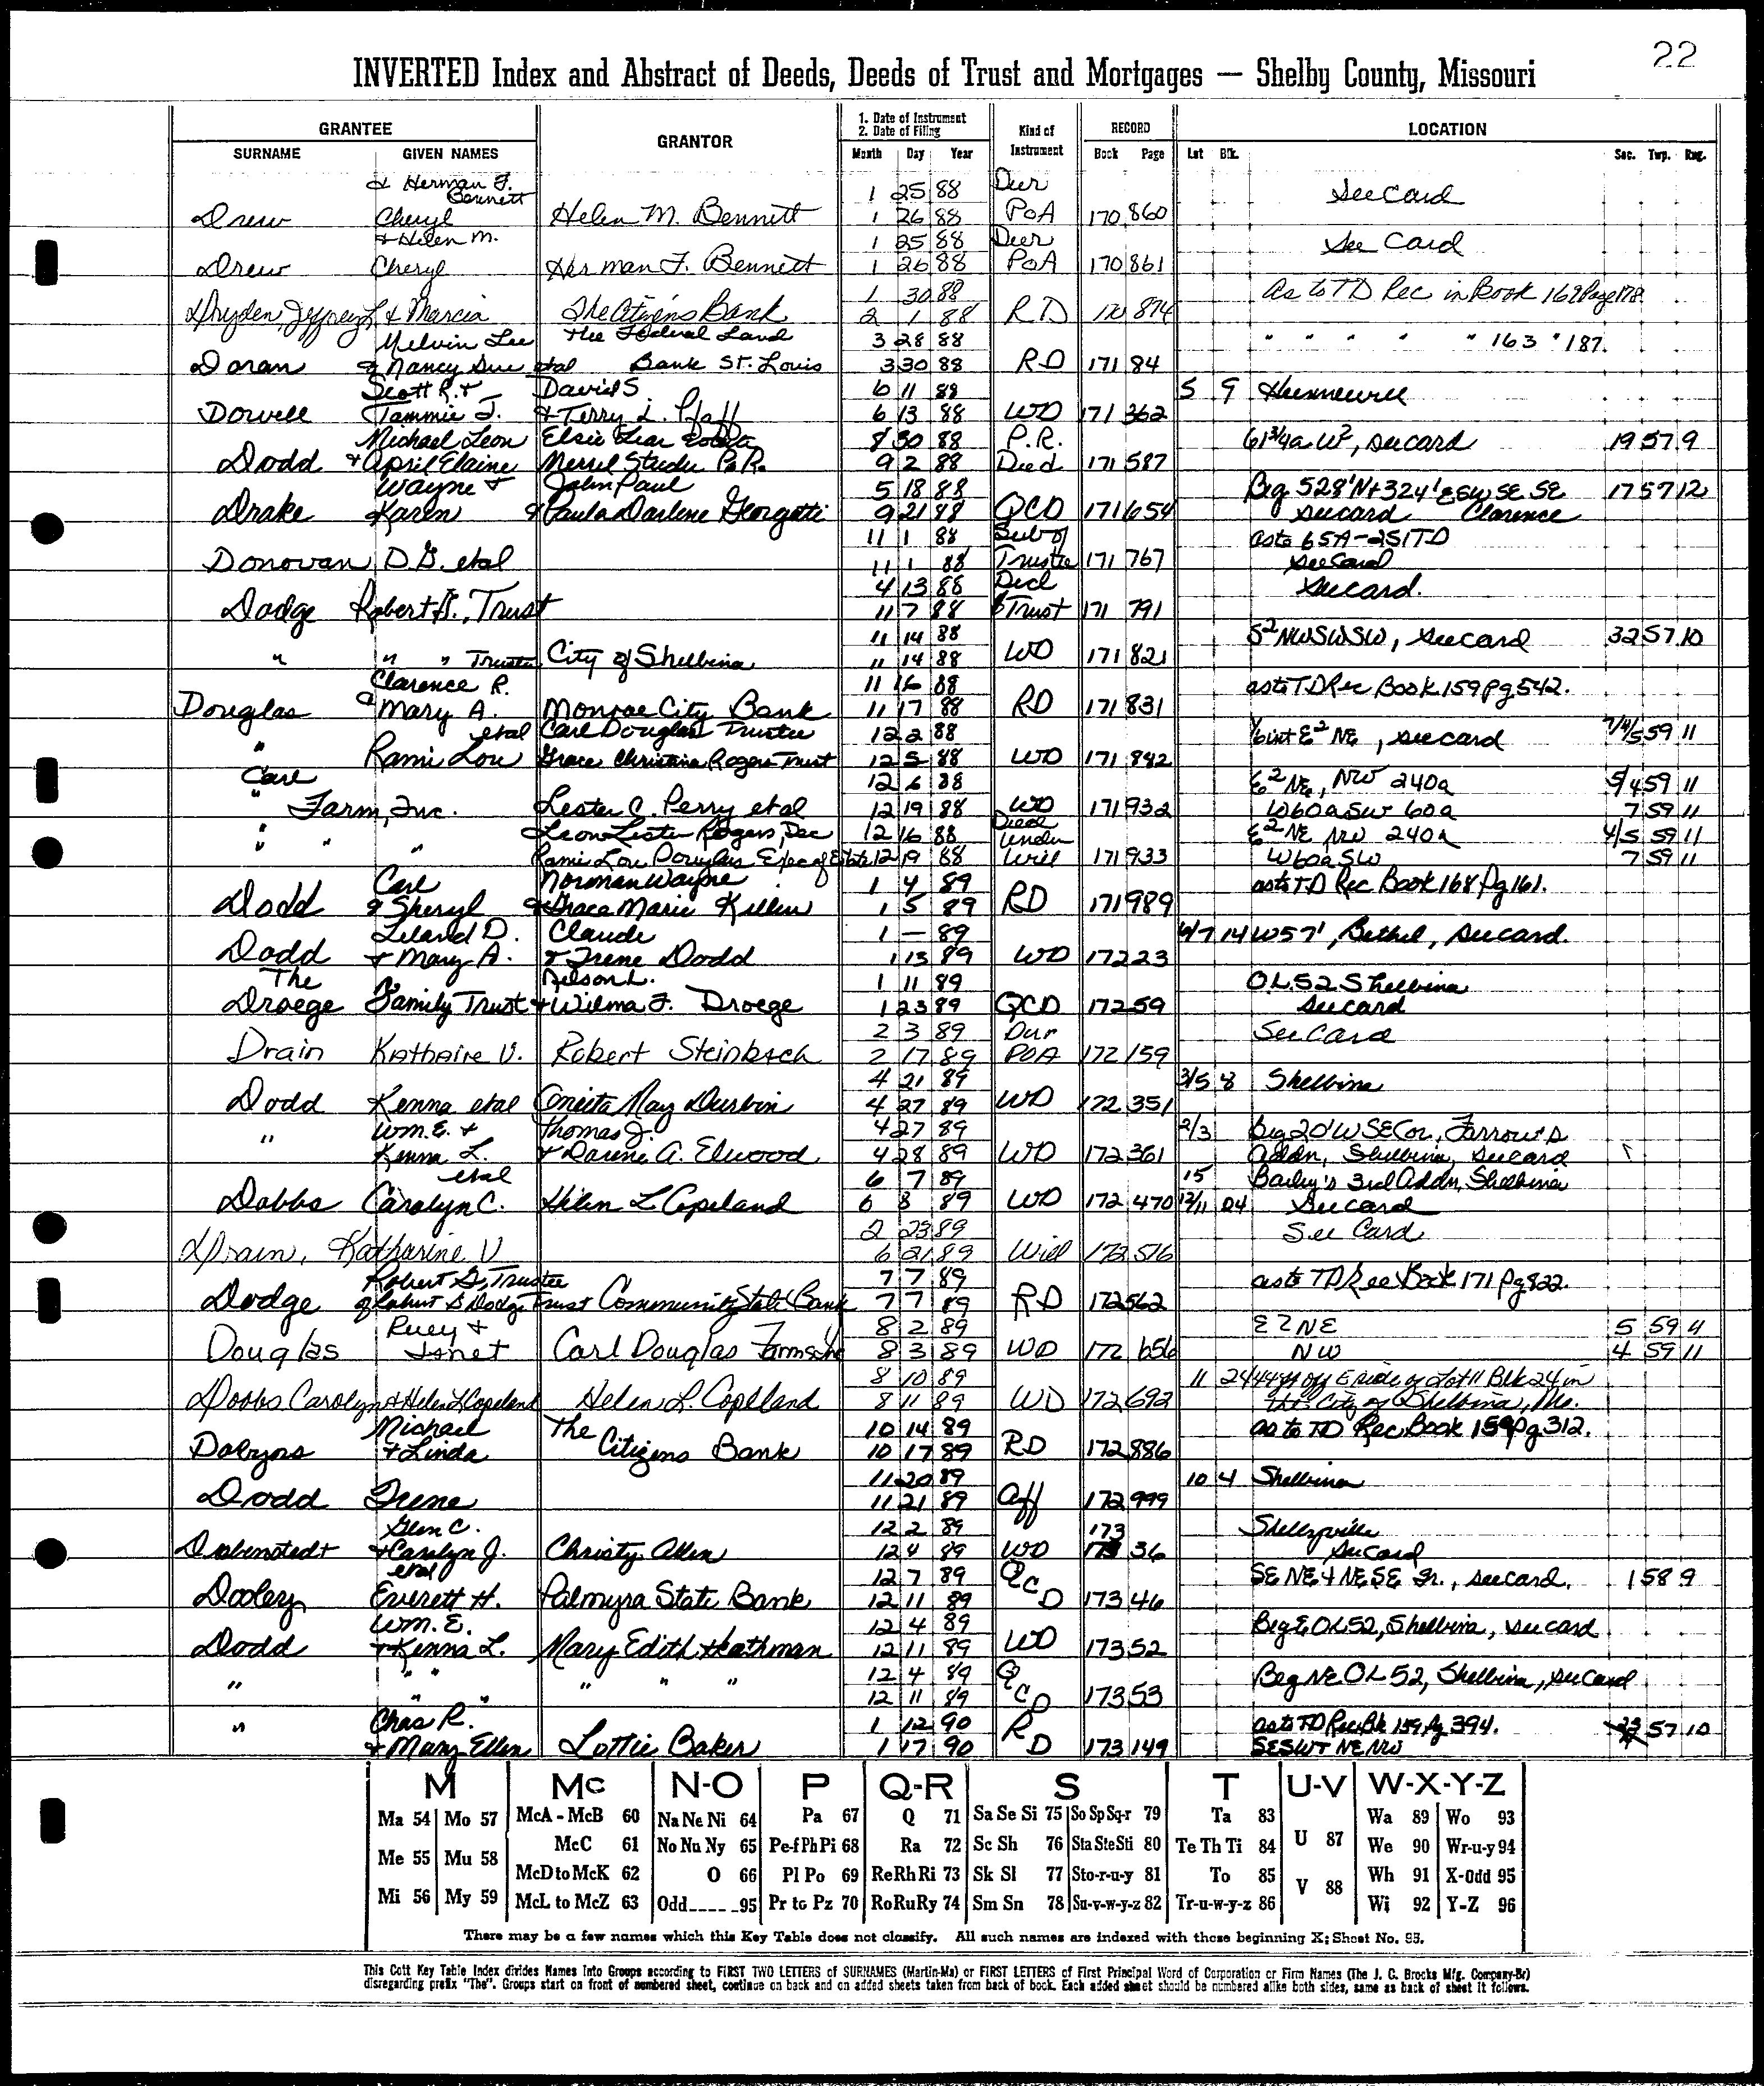 22
INVERTED Index and Abstract of Deeds, Deeds of Trust and Mortgages — Shelby County, Missouri
GRANTEE GRANTOR 1. Date of Instrument 2. Date of Filing Kind of Instrument RECORD LOCATION
SURNAME GIVEN NAMES Month Day Year Book Page Lot Blk. Sec. Twp. Rng.
& Herman F. Bennett 1 25 88 Dur See Card
Drew Cheryl Helen M. Bennett 1 26 88 PoA 170 860
& Helen M. 1 25 88 Dur See Card
Drew Cheryl Herman F. Bennett 1 26 88 PoA 170 861
1 30 88 As to TD Rec in Book 169 Page 178
Dryden, Jeffrey L & Marcia The Citizens Bank 2 1 88 RD 170 874
Melvin Lee The Federal Land 3 28 88 " " " " " 163 " 187.
Doran & Nancy Sue etal Bank St. Louis 3 30 88 RD 171 84
Scott R. & David S 6 11 88 5 9 Hunnewell
Dowell Tammie J. & Terry L. Pfaff 6 13 88 WD 171 362
Michael Leon Elsie Lear 8 30 88 P.R. 61 3/4a W², see card 19 57 9
Dodd & April Elaine Merrel Studer P.R. 9 2 88 Deed 171 587
Wayne & John Paul 5 18 88 Beg 528' N + 324' E SW SE SE 17 57 12
Drake Karen & Paula Darlene Georgetti 9 21 88 QCD 171 654 see card Clarence
11 1 88 Sub of as to 65A-251TD
Donovan D.G. etal 11 1 88 Trustee 171 767 see Card
4 13 88 Decl see card.
Dodge Robert G., Trust 11 7 88 Trust 171 791
11 14 88 S² NW SW SW, see card 32 57 10
" " " Trustee City of Shelbina 11 14 88 WD 171 821
Clarence R. 11 16 88 as to TD Rec Book 159 pg 542.
Douglas & Mary A. Monroe City Bank 11 17 88 RD 171 831
etal Carl Douglas Trustee 12 2 88 1/6 int E² NE, see card 7/4/5 59 11
" Rami Lou Grace Christina Rogers Trust 12 5 88 WD 171 892
Carl 12 6 88 E² NE, NW 240a 5/4 59 11
" Farm, Inc. Lester C. Perry etal 12 19 88 WD 171 932 W60a SW 60a 7 59 11
" " " Leon Lester Rogers, Dec 12 16 88 Deed Under E² NE NW 240a 4/5 59 11
Rami Lou Douglas Exec of Estate 12 19 88 Will 171 933 W60a SW 7 59 11
Carl Norman Wayne 1 4 89 as to TD Rec Book 168 Pg 161.
Dodd & Sheryl & Grace Marie Killen 1 5 89 RD 171 989
Leland D. Claude 1 — 89 6/7 14 W57', Bethel, see card.
Dodd & Mary A. & Irene Dodd 1 13 89 WD 172 23
The Nelson L. 1 11 89 OL 52 Shelbina
Droege Family Trust & Wilma F. Droege 1 23 89 QCD 172 59 see card
2 3 89 Dur See Card
Drain Kathaire V. Robert Steinbach 2 17 89 POA 172 159
4 21 89 3/5 8 Shelbina
Dodd Kenna etal Oneita May Durbin 4 27 89 WD 172 351
Wm. E. & Thomas J. 4 27 89 2/3 Beg 20' W SE Cor, Farrow's
" Kenna L. & Darene A. Elwood 4 28 89 WD 172 361 Addn, Shelbina, see card
etal 6 7 89 15 Bailey's 3rd Addn, Shelbina
Dobbs Carolyn C. Helen L Copeland 6 8 89 WD 172 470 12/11 24 see card
2 23 89 See Card
Drain, Katharine V 6 21 89 Will 172 516
Robert G, Trustee 7 7 89 as to TD Rec Book 171 pg 822.
Dodge of Robert G Dodge Trust Community State Bank 7 7 89 RD 172 562
Ruey & 8 2 89 E2NE 5 59 11
Douglas Janet Carl Douglas Farms Inc 8 3 89 WD 172 656 NW 4 59 11
8 10 89 11 24 44 ft off E side of Lot 11 Blk 24 in
Dobbs Carolyn & Helen L Copeland Helen L. Copeland 8 11 89 WD 172 692 the City of Shelbina, Mo.
Michael The 10 14 89 as to TD Rec Book 159 pg 312.
Dobyns & Linda Citizens Bank 10 17 89 RD 172 886
11 20 89 10 4 Shelbina
Dodd Irene 11 21 89 Aff 172 999
Glen C. 12 2 89 173 Shelbyville
Dobenstedt & Carolyn J. Christy Allen 12 4 89 WD 36 see Card
etal 12 7 89 QC SE NE & NE SE Fr., see card. 1 58 9
Dooley Everett H. Palmyra State Bank 12 11 89 D 173 46
Wm. E. 12 4 89 Beg E OL 52, Shelbina, see card
Dodd & Kenna L. Mary Edith Heathman 12 11 89 WD 173 52
" " 12 4 89 Q Beg NE OL 52, Shelbina, see Card
" " " " " " 12 11 89 CD 173 53
Chas R. 1 12 90 R as to TD Rec Bk 159 Pg 394. 57 10
" & Mary Ellen Lottie Baker 1 17 90 D 173 149 SESW & NE NW
M Mc N-O P Q-R S T U-V W-X-Y-Z
Ma 54 Mo 57 McA - McB 60 Na Ne Ni 64 Pa 67 Q 71 Sa Se Si 75 So Sp Sq-r 79 Ta 83 U 87 Wa 89 Wo 93
McC 61 No Nu Ny 65 Pe-f Ph Pi 68 Ra 72 Sc Sh 76 Sta Ste Sti 80 Te Th Ti 84 We 90 Wr-u-y 94
Me 55 Mu 58 McD to McK 62 O 66 Pl Po 69 Re Rh Ri 73 Sk Sl 77 Sto-r-u-y 81 To 85 V 88 Wh 91 X-Odd 95
Mi 56 My 59 McL to McZ 63 Odd-----95 Pr to Pz 70 Ro Ru Ry 74 Sm Sn 78 Su-v-w-y-z 82 Tr-u-w-y-z 86 Wi 92 Y-Z 96
There may be a few names which this Key Table does not classify. All such names are indexed with those beginning X; Sheet No. 95.
This Cott Key Table Index divides Names Into Groups according to FIRST TWO LETTERS of SURNAMES (Martin-Ma) or FIRST LETTERS of First Principal Word of Corporation or Firm Names (The J. C. Brocks Mfg. Company-Br)
disregarding prefix "The". Groups start on front of numbered sheet, continue on back and on added sheets taken from back of book. Each added sheet should be numbered alike both sides, same as back of sheet it follows.